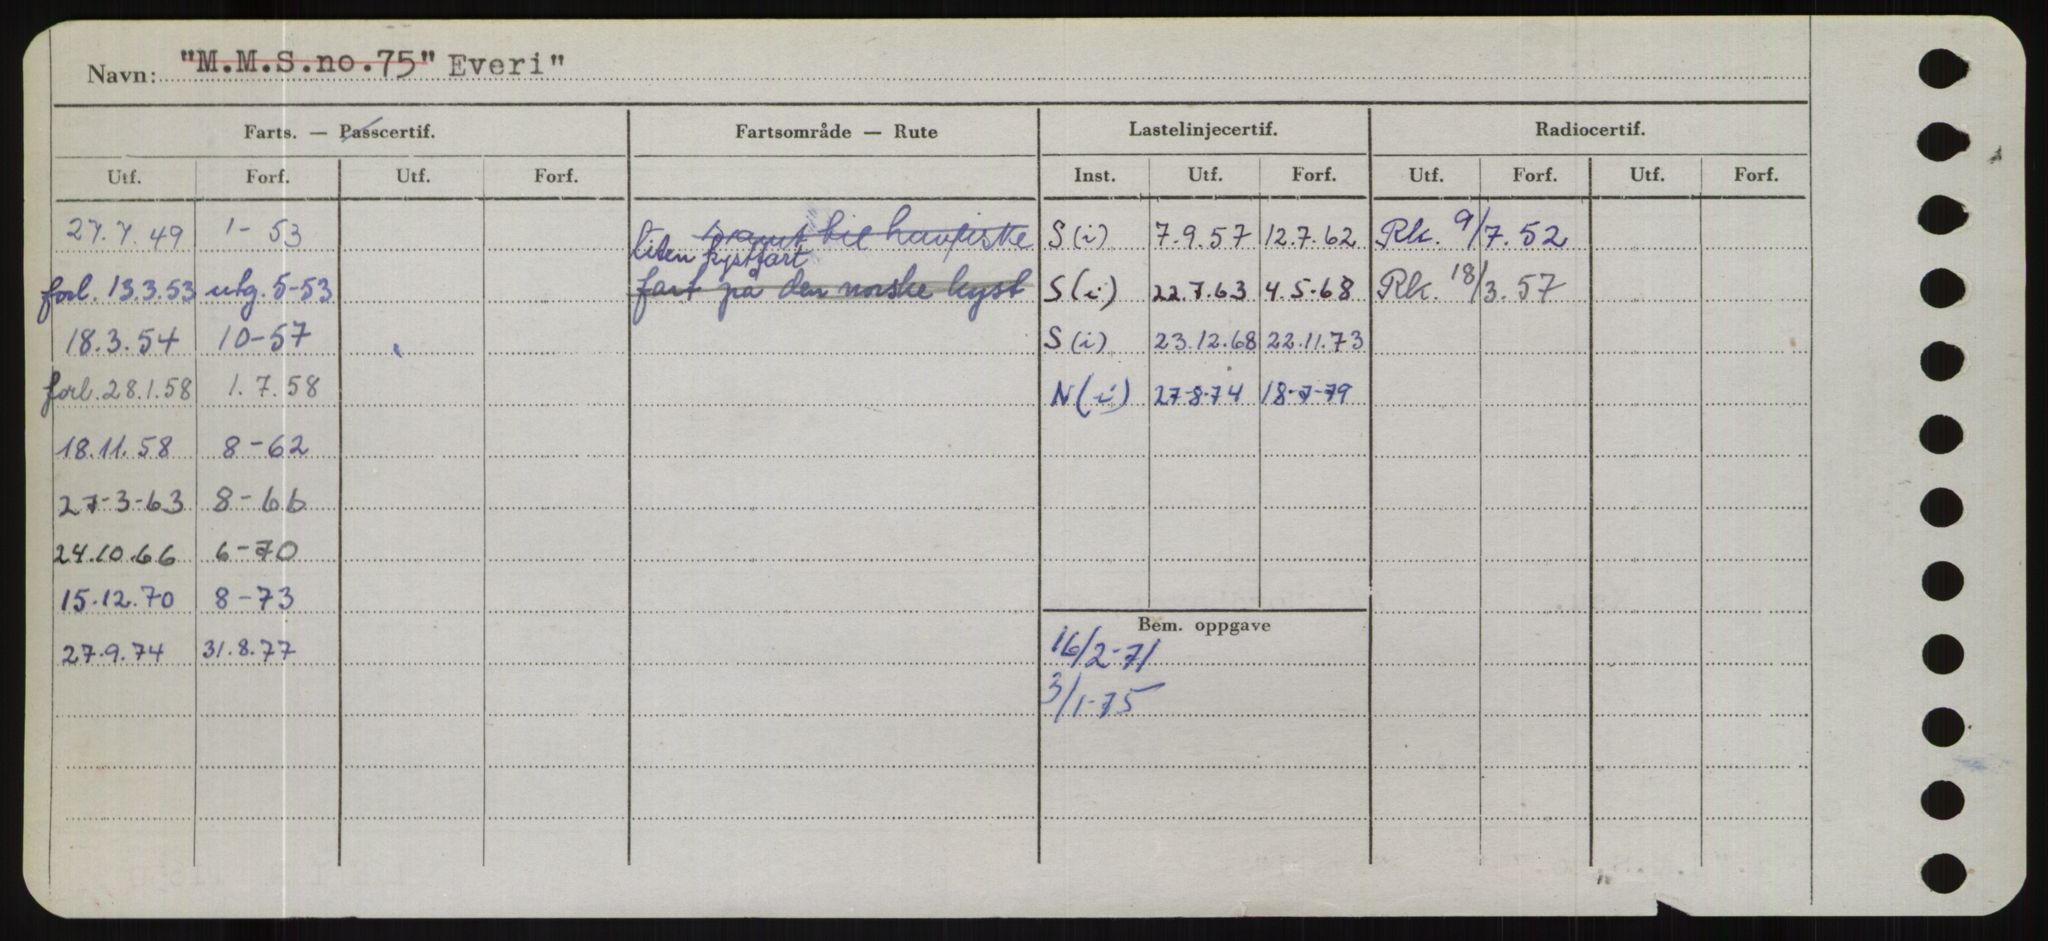 Navn: "M.M.S.no.75" Everi"
Farts. — Passcertif. Fartsområde — Rute Lastelinjecertif. Radiocertif.
Utf. Forf. Utf. Forf. Inst. Utf. Forf. Utf. Forf. Utf. Forf.
27.7.49 1-53 samt til havfiske S(i) 7.9.57 12.7.62 Rk. 9/7.52
liten kystfart
forl. 13.3.53 utg. 5-53 fart på den norske kyst S(i) 22.7.63 4.5.68 Rk. 18/3.57
18.3.54 10-57 S(i) 23.12.68 22.11.73
forl. 28.1.58 1.7.58 N(i) 27-8-74 18-7-79
18.11.58 8-62
27-3-63 8-66
24.10.66 6-70
15.12.70 8-73
Bem. oppgave
27.9.74 31.8.77 16/2-71
3/1-75